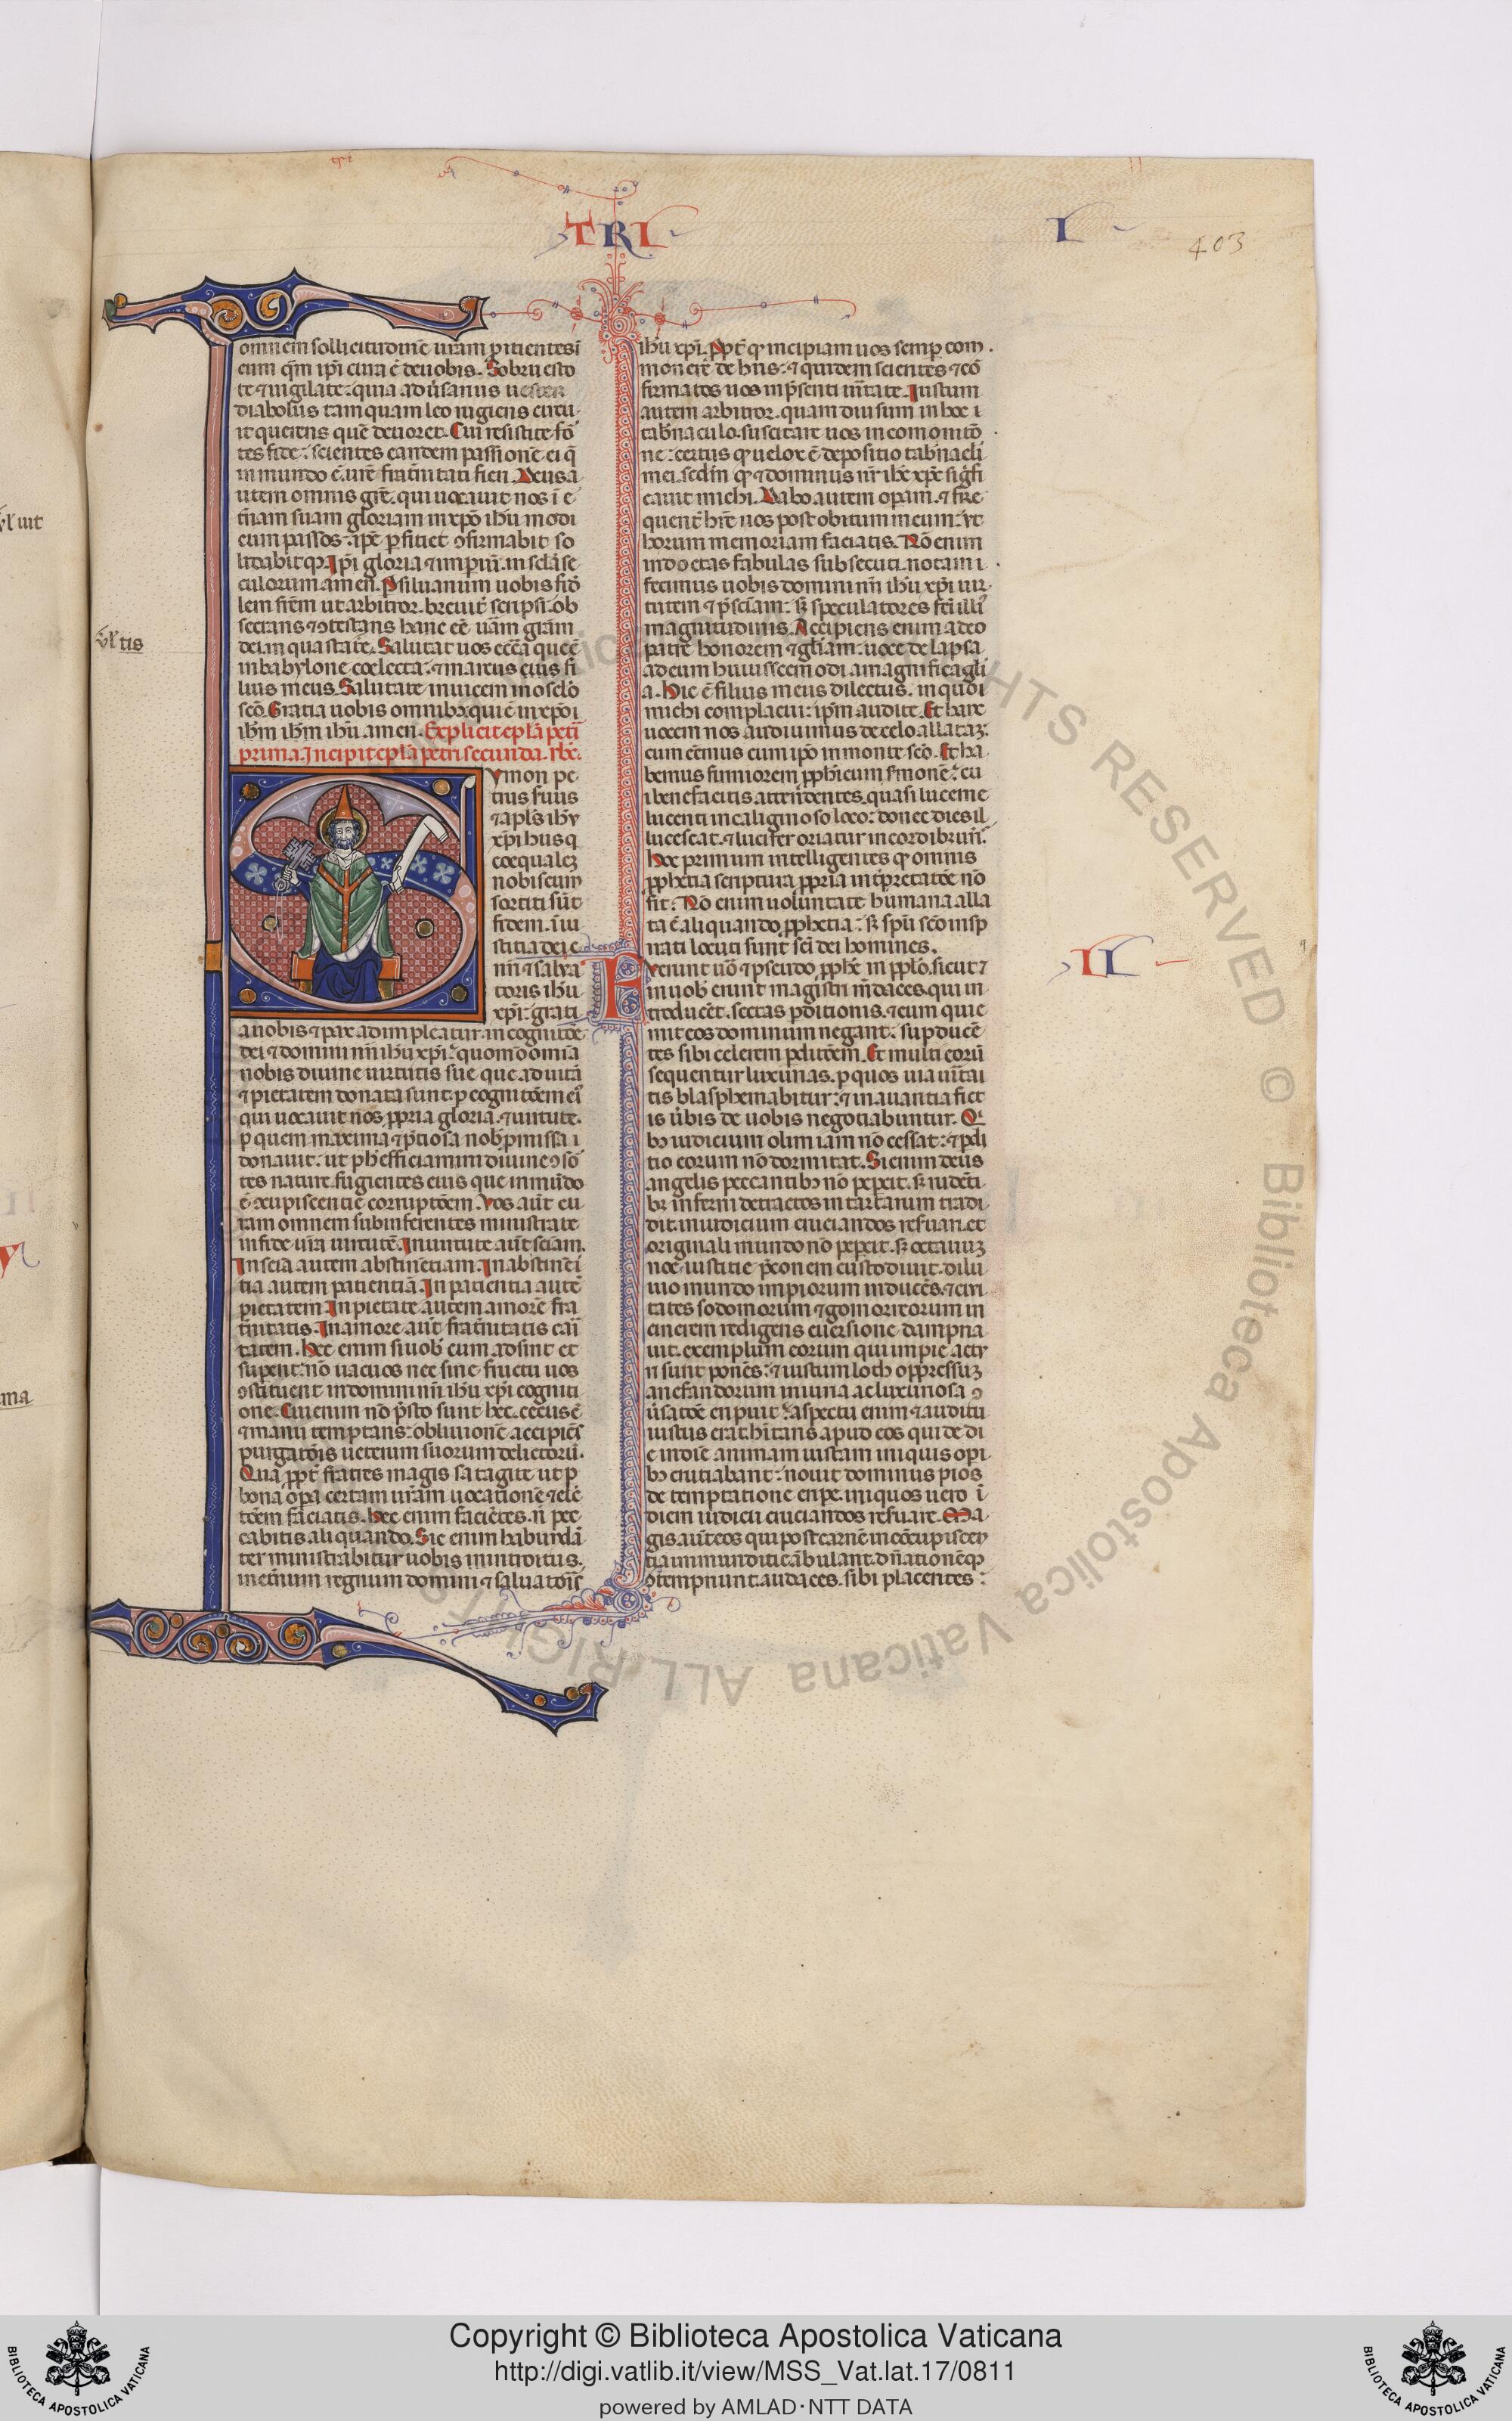 TRI
I
403
omnem sollicitudinē uram ꝓitientes ī
eum qm̄ ip̄i cura ē de uobis. Sobrii esto
te ⁊ uigilate: quia aduͥsarius uester
diabolus tamquam leo rugiens circu
it querens quē deuoret. Cui resistite for̄
tes fide: scientes eandem passionē ei q̄
in mundo ē ur̄e frat̄nitati fieri. Deus a
utem omnis gr̄e. qui uocauit nos ī e
t̄nam suam gloriam in xp̄o ih̄u modi
cum passos. ip̄e ꝑficiet ꝯfirmabit so
lidabit qꝫ Ip̄i gloria ⁊ imꝑiū. in sc̄la se
culorum amen. P siluanum uobis fid̄
lem fr̄em ut arbitror. breuit̄ scripsi: ob
secrans ⁊ ꝯtestans hanc eē uām grām
dei in qua statis. Salutat uos ecc̄a que ē
in babylone coelecta: ⁊ marcus eius fi
lius meus. Salutate inuicem in osclō
scō. Gratia uobis omnibꝫ qui ē in xp̄o i
ih̄m ih̄m ih̄u amen. Explicit ep̄la petri
prima. Incipit ep̄la petri secunda. rb̄e.
ymon pe
trus suus
⁊ apl̄s ih̄u
xp̄i hus q
coequalez
nobiscum
sortiti sūt
fidem. ī iu
stitia dei e
nr̄i ⁊ salua
toris ih̄u
xp̄i: grati
a uobis ⁊ pax adimpleatur. in cognitōe
dei ⁊ domini nr̄i ih̄u xp̄i: quomō omīa
nobis diuine uirtutis sue que ad uitā
⁊ pietatem donata sunt. ꝑ cognitōem eiꝰ
qui uocauit nos ꝓpria gloria. ⁊ uirtute.
ꝑ quem maxima ⁊ p̄tiosa nob̄ ꝓmissa i
donauit: ut ꝑ h̄ efficiamini diuine ꝯsō
tes nature. fugientes eius que in mūdo
ē ꝯcupiscentie corruptōem. Vos aūt cu
ram omnem subinferentes ministrate
in fide ur̄a uirtutē. In uirtute aūt sciam.
In scīa autem abstinētiam. In abstinēti
tia autem patientiā. In patientia autē
pietatem. In pietate autem amorē fra
t̄nitatis. In amore aūt frat̄nitatis cari
tatem. Hec enim si uob̄ cum adsint et
suꝑent: nō uacuos nec sine fructu uos
ꝯstituent in domini nr̄i ih̄u xp̄i cogniti
one. Cui enim nō p̄sto sunt hec. cecus ē
⁊ manu temptans: obliuionē accipiēs
purgatōis ueterum suorum delictorū.
Quā ꝓpt̄ fratres magis satagite ut ꝑ
bona oꝑa certam ur̄am uocationē ⁊ elē
tōem faciatis. Hec enim faciētes. n̄ pec
cabitis aliquando. Sic enim habundā
ter ministrabitur uobis introitus.
in et̄num regnum domini ⁊ saluatoris
ih̄u xp̄i. Ꝓpt̄ qᵈ incipiam uos semꝑ com
monere de hiis: ⁊ quidem scientes ⁊ cō
firmatos uos in p̄senti ūitate. Iustum
autem arbitror. quam diu sum in hoc i
tab̄naculo. suscitare uos in comonitō
ne: certus qᵈ uelox ē depositio tab̄naculi
mei. sedm̄ qᵈ ⁊ dominus nr̄ ih̄c xp̄c sig̅fi
cauit michi. Dabo autem oꝑam. ⁊ fre
quent̄ hr̄e uos post obitum meum: ut
horum memoriam faciatis. Nō enim
indoctas fabulas subsecuti notam i
fecimus uobis domini nr̄i ih̄u xp̄i uir
tutem ⁊ p̄sc̄iam: sꝫ speculatores fc̄i illiꝰ
magnitudinis. Accipiens enim a deo
patre honorem ⁊ gl̄iam: uoce delapsa
ad eum huiuscemodi a magnifica gli
a. Hic ē filius meus dilectus. in quo i
michi complacui: ip̄m audite. Et hanc
uocem nos audiuimus de celo allataꝫ:
cum eēmus cum ip̄o in monte scō. Et ha
bemus firmiorem ꝓph̄icum s̄monē: cu
i bene facitis attendentes. quasi lucerne
lucenti in caliginoso loco: donec dies il
lucescat. ⁊ lucifer oriatur in cordibꝰ ur̄is.
Hoc primum intelligentes qᵈ omnis
ꝓphetia scriptura ꝓpria int̄pretatōe nō
fit. Nō enim uoluntate humana alla
ta ē aliquando ꝓphetia: sꝫ spū scō insp
nati locuti sunt sc̄i dei homines.
II
Fverunt uō ⁊ pseudo ꝓph̄e in pplō. sicut ⁊
in uob̄ erunt magistri m̄daces. qui in
troducēt. sectas ꝑditionis. ⁊ eum qui e
mit eos dominum negant: suꝑducē
tes sibi celerem ꝑditōem. Et multi eorū
sequentur luxurias. ꝑ quos uia uīta
tis blasphemabitur: ⁊ in auaritia fict
is ūbis de uobis negotiabuntur. Qⁱ
bꝫ iudicium olim iam nō cessat: ⁊ ꝑdi
tio eorum nō dormitat. Si enim deus
angelis peccantibꝫ nō peꝑcit. sꝫ rudēti
bꝫ inferni detractos in tartarum tradi
dit. in iudicium cruciandos reseruari. et
originali mundo nō peꝑcit. sꝫ octauuꝫ
noe iustitie p̄conem custodiuit. dilu
uio mundo impiorum inducēs. ⁊ ciui
tates sodomorum ⁊ gomorreorum in
cinerem redigens euersione dampna
uit. exemplum eorum qui impie actꝰ
ri sunt ponēs: ⁊ iustum loth oppressuꝫ
a nefandorum iniuria ac luxuriosa ꝯ
ūsatōe eripuit: aspectu enim ⁊ auditu
iustus erat: hīans apud eos qui de di
e in diē animam iustam iniquis oꝑi
bꝫ cruciabant: nouit dominus pios
de temptatione eriꝑe. iniquos uero ī
diem iudicii cruciandos reseruare. Ma
gis aūt eos qui post carnē in cōcupiscen
tia immunditie ābulant. dn̄ationēqꝫ
ꝯtempnunt. audaces. sibi placentes:
ul' tis
ALL RIGHTS RESERVED © Biblioteca Apostolica Vaticana
Copyright © Biblioteca Apostolica Vaticana
http://digi.vatlib.it/view/MSS_Vat.lat.17/0811
powered by AMLAD·NTT DATA
BIBLIOTECA APOSTOLICA VATICANA
BIBLIOTECA APOSTOLICA VATICANA